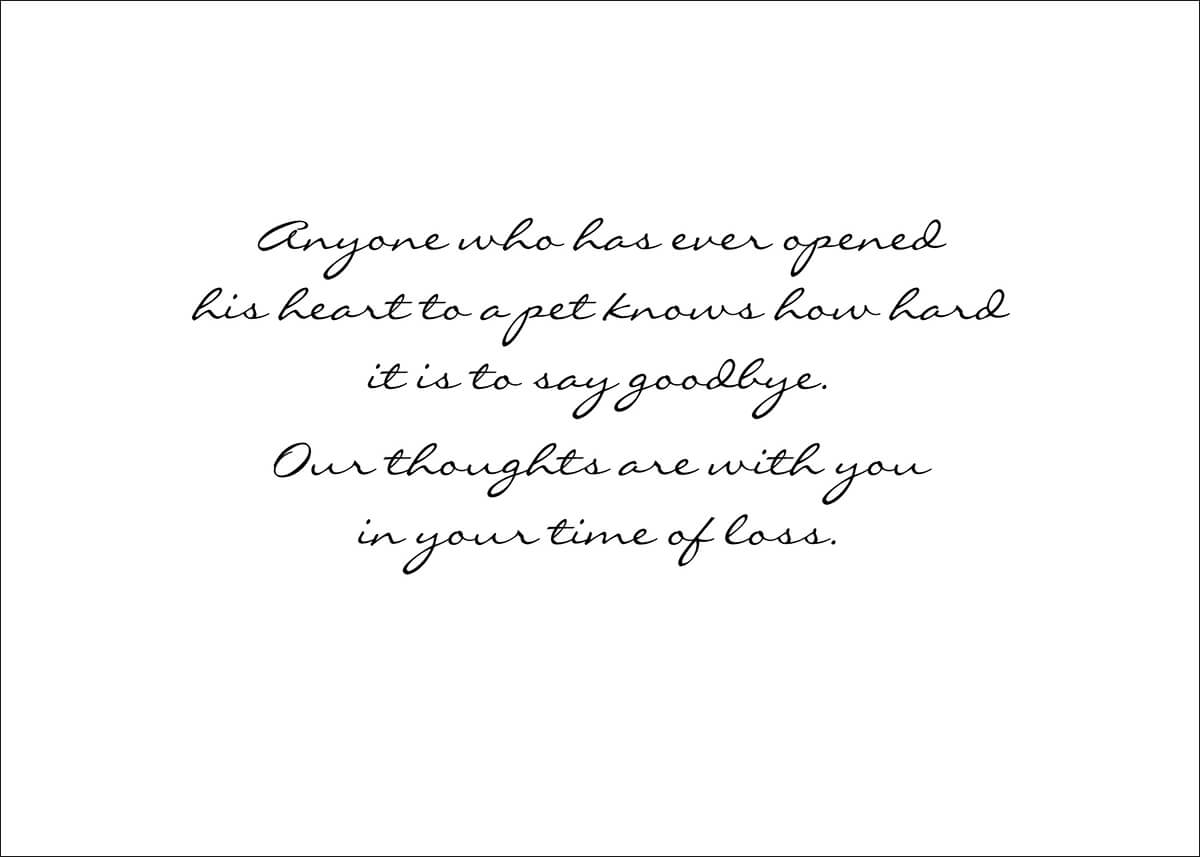 Anyone who has ever opened
his heart to a pet knows how hard
it is to say goodbye.
Our thoughts are with you
in your time of loss.